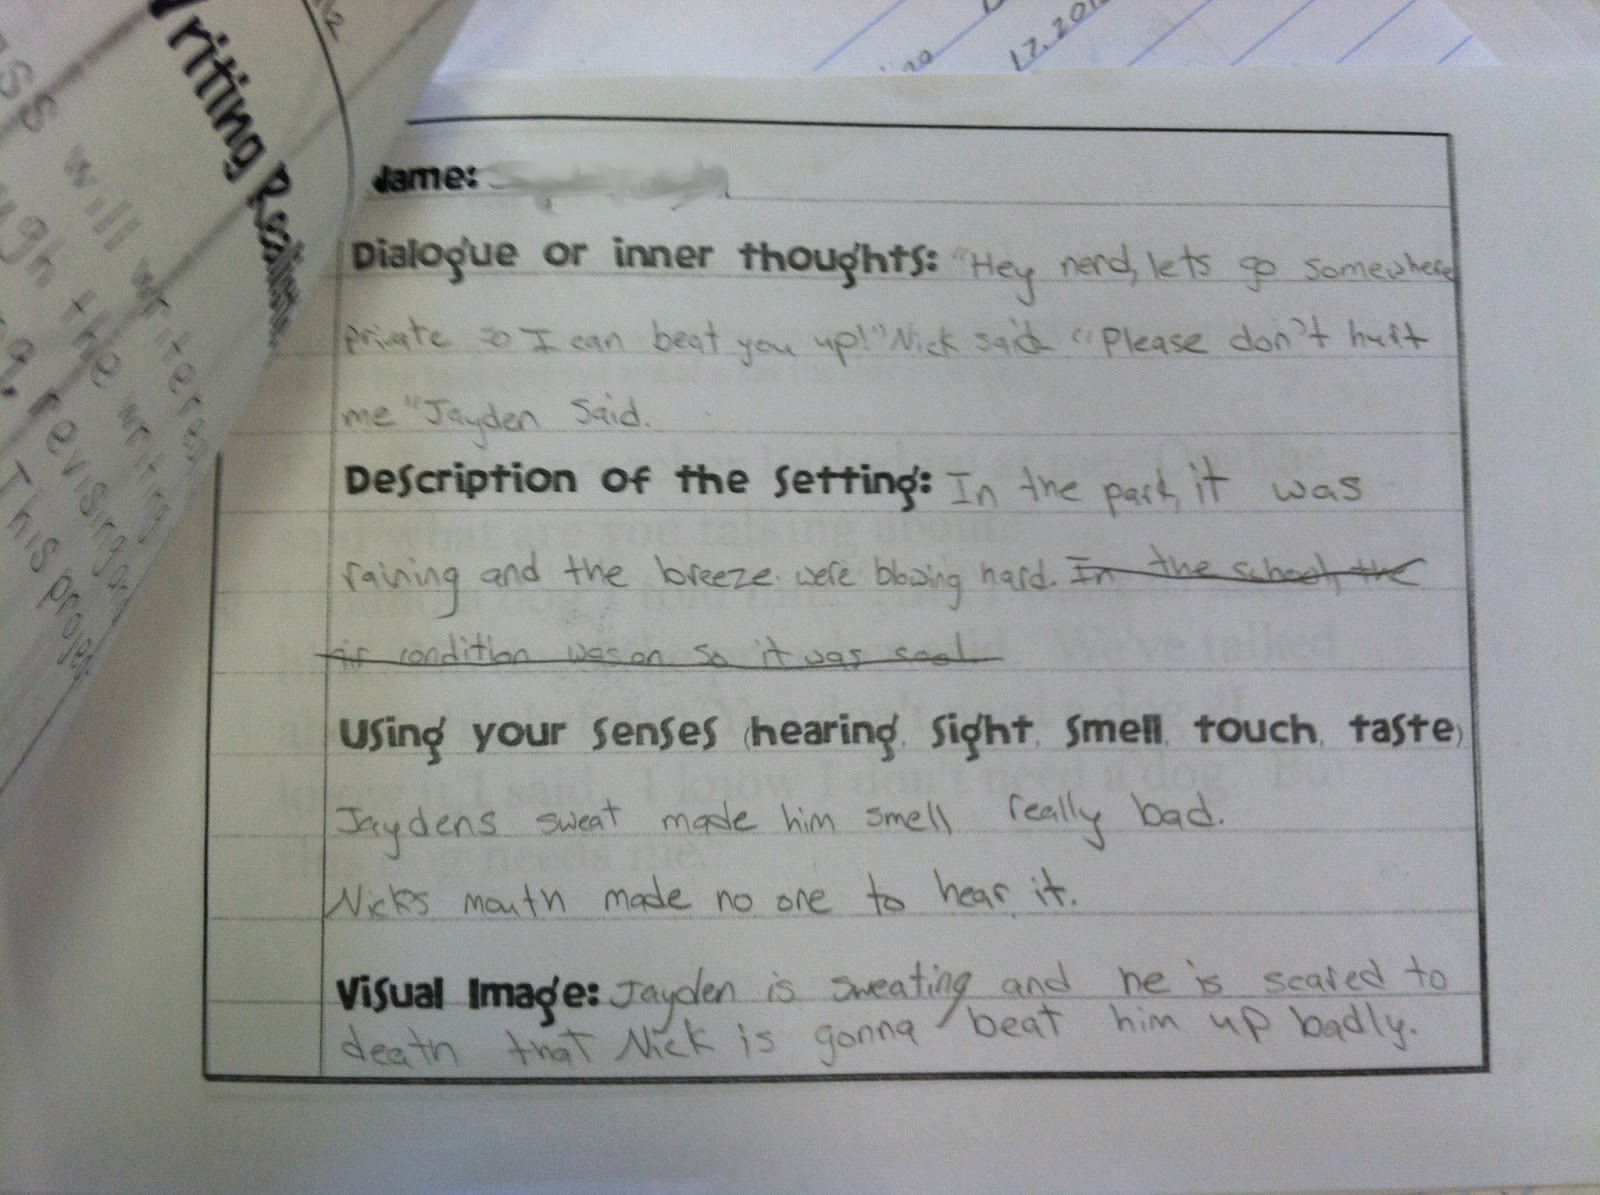 Writing Realistic
ss will writeres
ugh the writing
g, revising, an
This projec
17, 201
Name:
Dialogue or inner thoughts: "Hey nerd, lets go somewhere
private so I can beat you up!" Nick said "Please don't hurt
me" Jayden Said.
Description of the Setting: In the park, it was
raining and the breeze were blowing hard. In the school, the
air condition was on so it was cool
Using your Senses (hearing, Sight, Smell, touch, taste)
Jaydens sweat made him smell really bad.
Nicks mouth made no one to hear it.
Visual Image: Jayden is sweating and he is scared to
death that Nick is gonna beat him up badly.